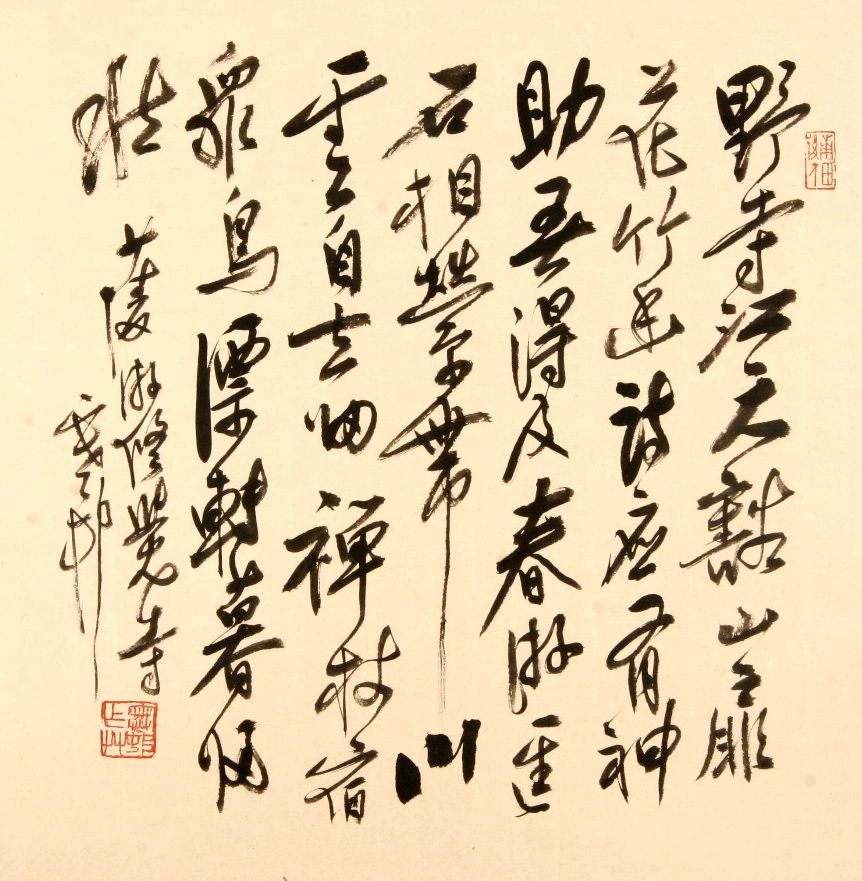 野寺江天豁山扉
花竹幽詩應有神
助吾得及春游徑
石相縈帶川
雲自去留禪枝宿
眾鳥漂轉暮歸
愁
少陵游修覺寺